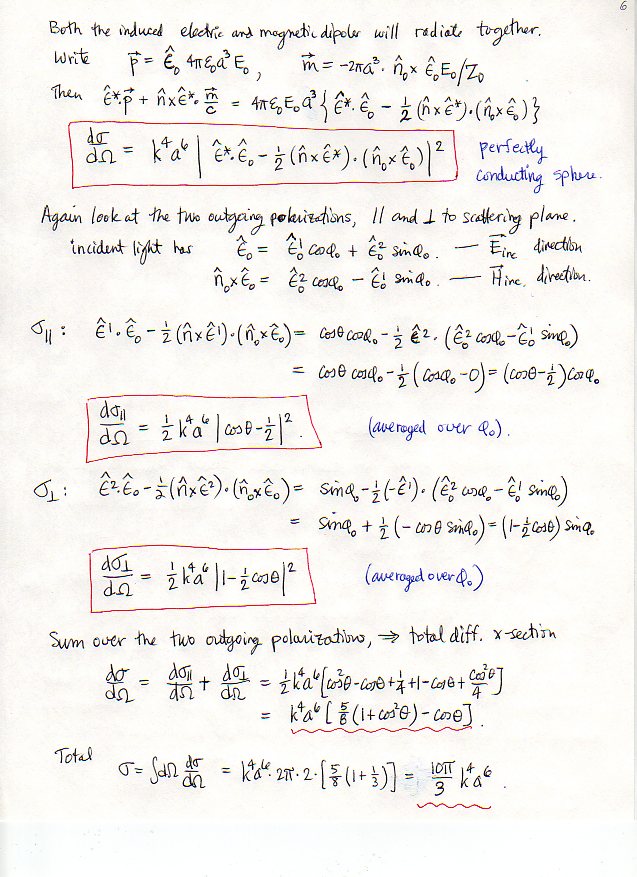 6
Both the induced electric and magnetic dipoles will radiate together.
Write p⃗ = ε̂₀ 4πε₀a³E₀, m⃗ = -2πa³ · n̂₀ × ε̂₀E₀/Z₀
Then ε̂*·p⃗ + n̂×ε̂*·m⃗/c = 4πε₀E₀a³{ε̂*·ε̂₀ - 1/2 (n̂×ε̂*)·(n̂₀×ε̂₀)}
dσ/dΩ = k⁴a⁶ | ε̂*·ε̂₀ - 1/2 (n̂×ε̂*)·(n̂₀×ε̂₀)|² perfectly
conducting sphere.
Again look at the two outgoing polarizations, // and ⊥ to scattering plane.
incident light has ε̂₀ = ε̂₀¹ cosφ₀ + ε̂₀² sinφ₀. — E⃗inc direction
n̂₀×ε̂₀ = ε̂₀² cosφ₀ - ε̂₀¹ sinφ₀. — H⃗inc. direction.
σ∥: ε̂¹·ε̂₀ - 1/2 (n̂×ε̂¹)·(n̂₀×ε̂₀) = cosθ cosφ₀ - 1/2 ε̂²·(ε̂₀² cosφ₀ - ε̂₀¹ sinφ₀)
= cosθ cosφ₀ - 1/2 (cosφ₀ - 0) = (cosθ - 1/2) cosφ₀
dσ∥/dΩ = 1/2 k⁴a⁶ | cosθ - 1/2 |². (averaged over φ₀).
σ⊥: ε̂²·ε̂₀ - 1/2 (n̂×ε̂²)·(n̂₀×ε̂₀) = sinφ₀ - 1/2 (-ε̂¹)·(ε̂₀² cosφ₀ - ε̂₀¹ sinφ₀)
= sinφ₀ + 1/2 (- cosθ sinφ₀) = (1 - 1/2 cosθ) sinφ₀
dσ⊥/dΩ = 1/2 k⁴a⁶ |1 - 1/2 cosθ|² (averaged over φ₀)
Sum over the two outgoing polarizations, ⇒ total diff. x-section
dσ/dΩ = dσ∥/dΩ + dσ⊥/dΩ = 1/2 k⁴a⁶[cos²θ - cosθ + 1/4 + 1 - cosθ + cos²θ/4]
= k⁴a⁶ [5/8 (1 + cos²θ) - cosθ].
Total σ = ∫dΩ dσ/dΩ = k⁴a⁶ · 2π · 2 · [5/8 (1 + 1/3)] = 10π/3 k⁴a⁶.